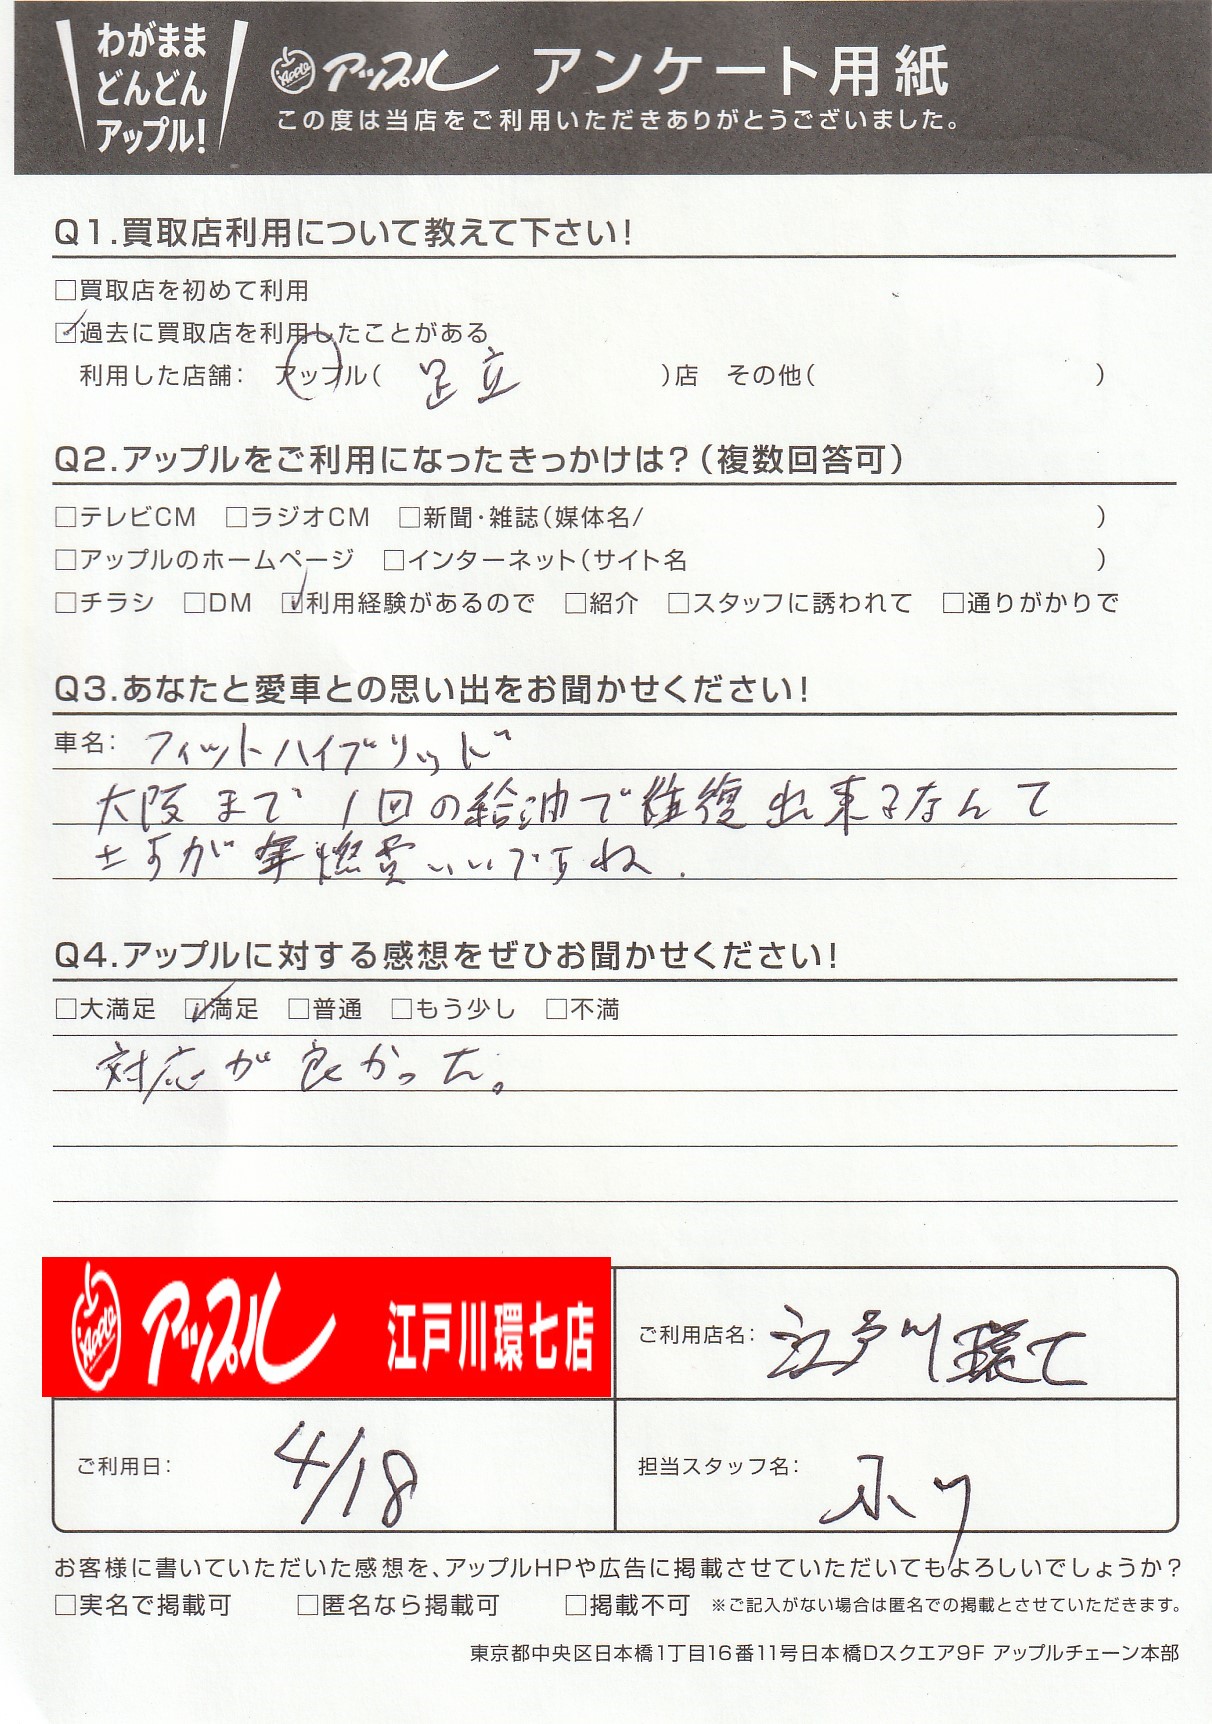 わがまま
どんどん
アップル!
Apple アップル アンケート用紙
この度は当店をご利用いただきありがとうございました。
Q1.買取店利用について教えて下さい!
□買取店を初めて利用
☑過去に買取店を利用したことがある
利用した店舗: アップル( 足立 )店 その他( )
Q2.アップルをご利用になったきっかけは?(複数回答可)
□テレビCM □ラジオCM □新聞・雑誌(媒体名/ )
□アップルのホームページ □インターネット(サイト名 )
□チラシ □DM ☑利用経験があるので □紹介 □スタッフに誘われて □通りがかりで
Q3.あなたと愛車との思い出をお聞かせください!
車名: フィットハイブリッド
大阪まで1回の給油で往復出来るなんて
さすが 燃費いいですね.
Q4.アップルに対する感想をぜひお聞かせください!
□大満足 ☑満足 □普通 □もう少し □不満
対応が良かった。
Apple アップル 江戸川環七店
ご利用店名: 江戸川環七
ご利用日: 4/18
担当スタッフ名:
お客様に書いていただいた感想を、アップルHPや広告に掲載させていただいてもよろしいでしょうか?
□実名で掲載可 □匿名なら掲載可 □掲載不可 ※ご記入がない場合は匿名での掲載とさせていただきます。
東京都中央区日本橋1丁目16番11号日本橋Dスクエア9F アップルチェーン本部